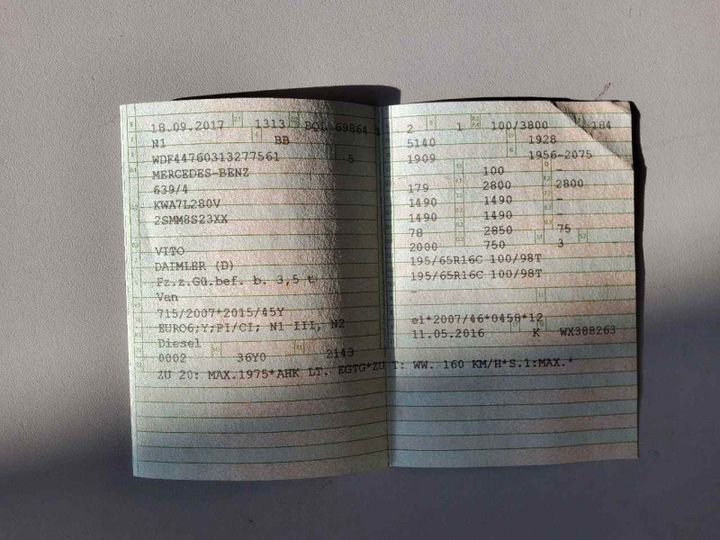 18.09.2017 1313 BQL 69864
N1 BB
WDF44760313277561 5
MERCEDES-BENZ
639/4
KWA7L280V
2SMM8S23XX
VITO
DAIMLER (D)
Fz.z.Gü.bef. b. 3,5 t
Van
715/2007*2015/45Y
EURO6;Y;PI/CI; N1 III, N2
Diesel
0002 36Y0 2143
2 1 100/3800 184
5140 1928
1909 1956-2075
100 –
179 2800 2800
1490 – –
1490 1490 –
78 2850 75
2000 750 3
195/65R16C 100/98T
195/65R16C 100/98T
–
e1*2007/46*0458*12
11.05.2016 K WX388263
ZU 20: MAX.1975*AHK LT. EGTG*ZU T: WW. 160 KM/H*S.1:MAX.*